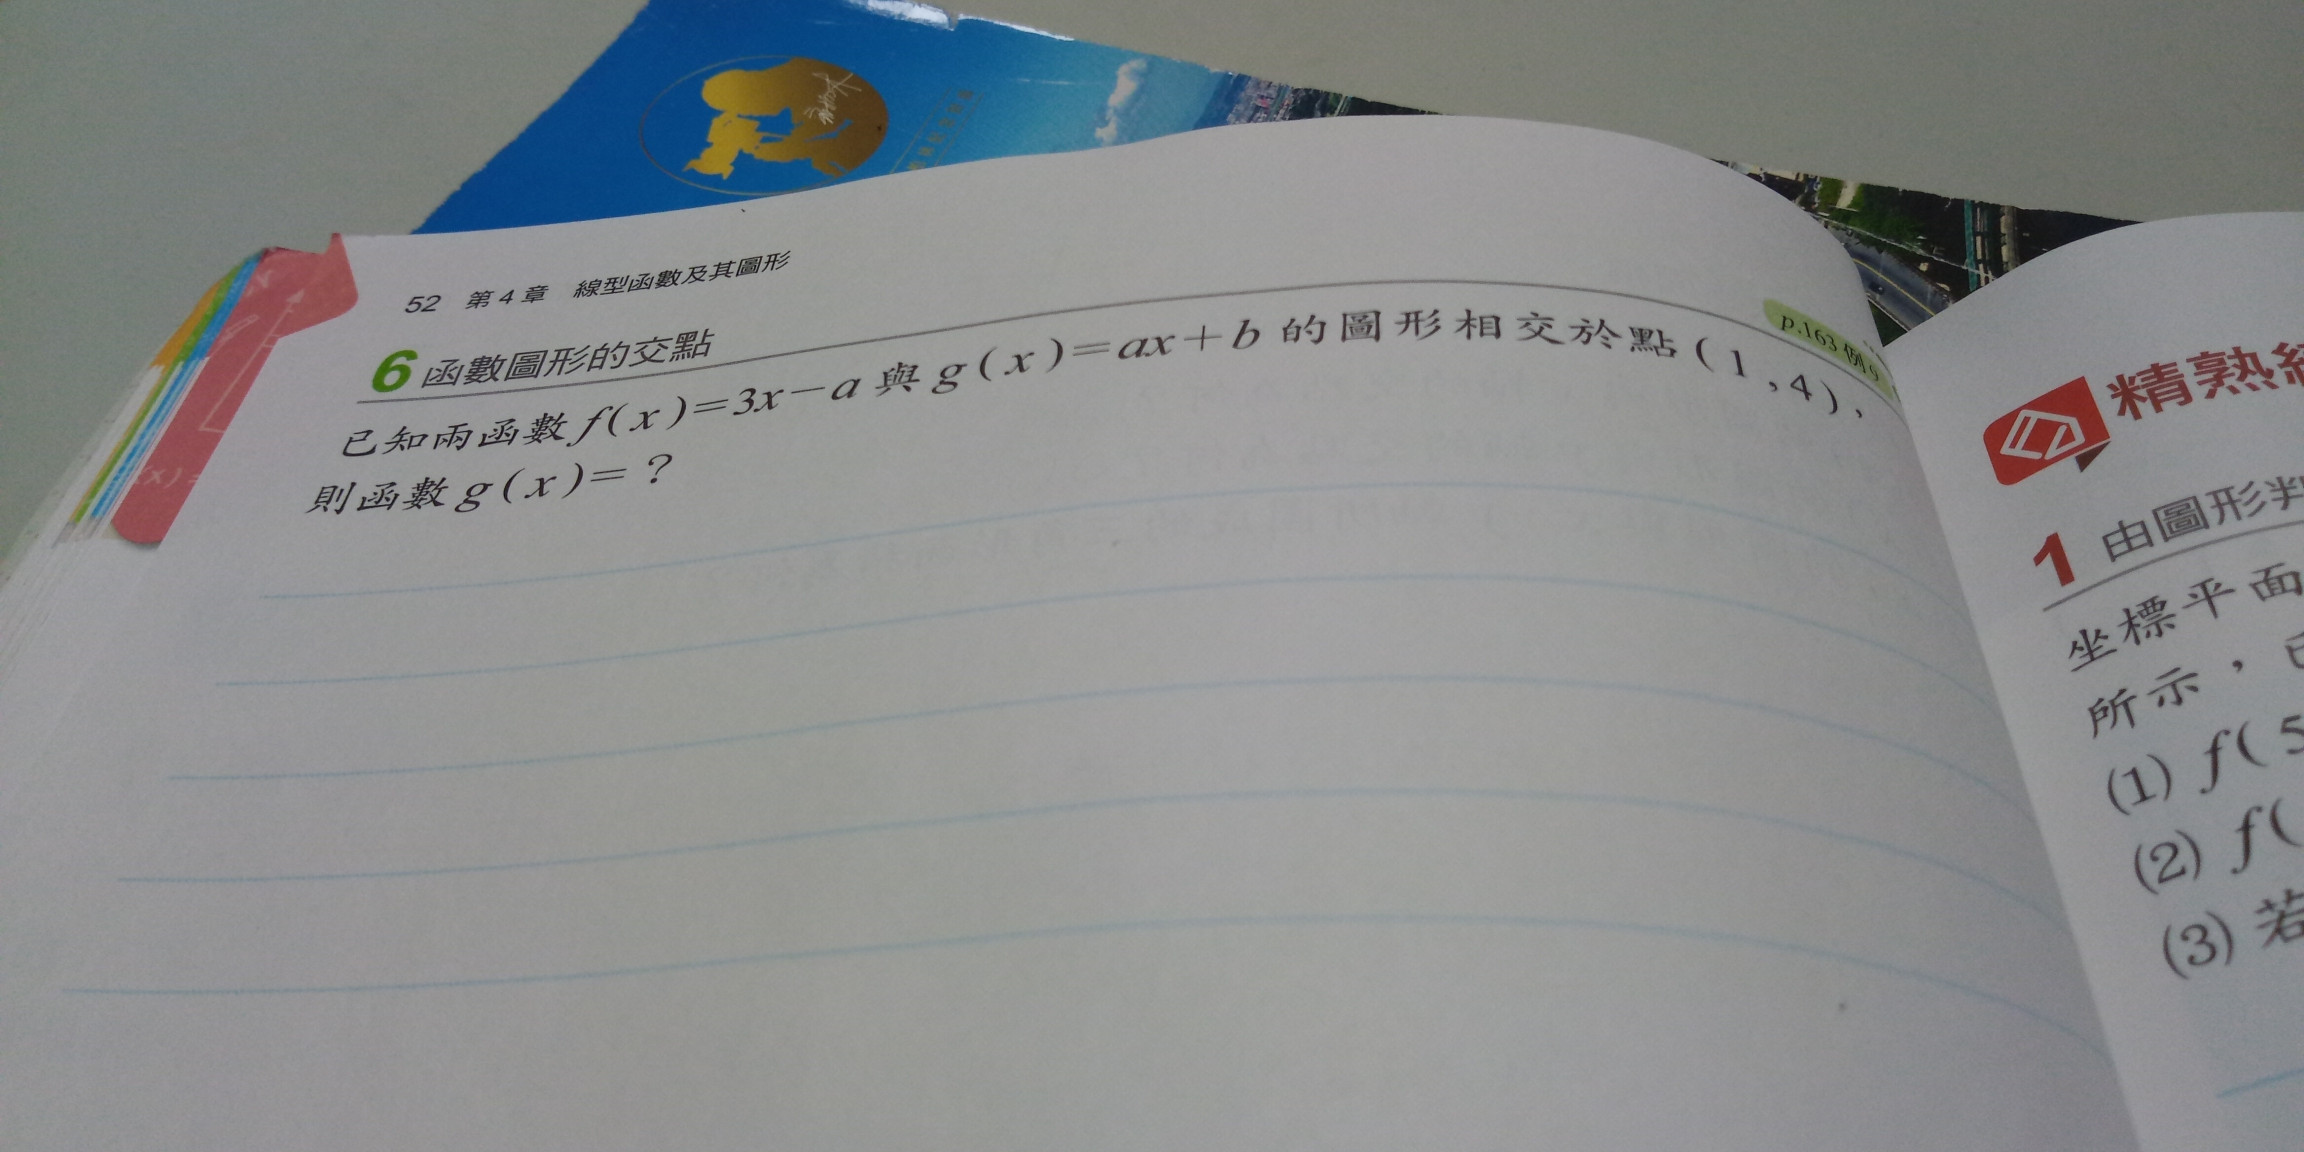 52 第4章 線型函數及其圖形
6 函數圖形的交點
p.163 例9
已知兩函數 f(x)=3x-a 與 g(x)=ax+b 的圖形相交於點(1,4),
則函數 g(x)=?
精熟
1 由圖形判
坐標平面
所示,
(1) f(5
(2) f(
(3) 若